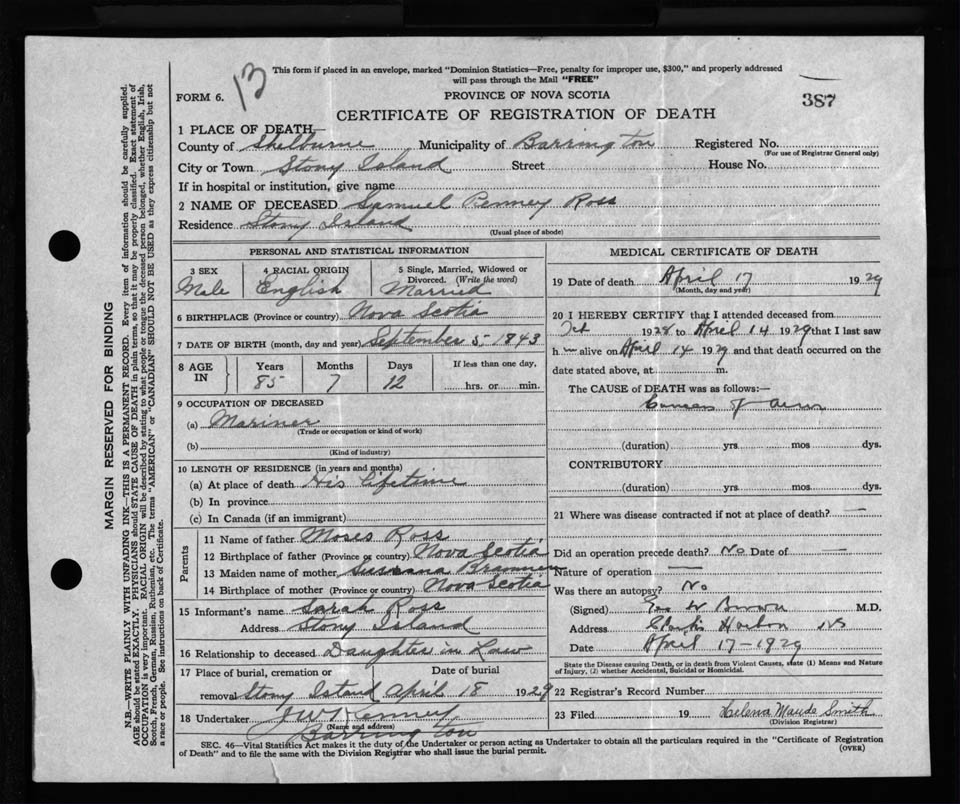 13
This form if placed in an envelope, marked "Dominion Statistics—Free, penalty for improper use, $300," and properly addressed
will pass through the Mail "FREE"
FORM 6.
PROVINCE OF NOVA SCOTIA
387
CERTIFICATE OF REGISTRATION OF DEATH
1 PLACE OF DEATH—
County of Shelburne Municipality of Barrington Registered No.
(For use of Registrar General only)
City or Town Stony Island Street House No.
If in hospital or institution, give name
2 NAME OF DECEASED Samuel Penney Ross
Residence Stony Island
(Usual place of abode)
PERSONAL AND STATISTICAL INFORMATION
3 SEX
Male
4 RACIAL ORIGIN
English
5 Single, Married, Widowed or
Divorced. (Write the word)
Married
6 BIRTHPLACE (Province or country) Nova Scotia
7 DATE OF BIRTH (month, day and year) September 5, 1843
8 AGE IN
Years Months Days If less than one day,
85 7 12 hrs. or min.
9 OCCUPATION OF DECEASED
(a) Mariner
(Trade or occupation or kind of work)
(b)
(Kind of industry)
10 LENGTH OF RESIDENCE (in years and months)
(a) At place of death His lifetime
(b) In province
(c) In Canada (if an immigrant)
Parents
11 Name of father Moses Ross
12 Birthplace of father (Province or country) Nova Scotia
13 Maiden name of mother Susanna
14 Birthplace of mother (Province or country) Nova Scotia
15 Informant's name Sarah Ross
Address Stony Island
16 Relationship to deceased Daughter in Law
17 Place of burial, cremation or Date of burial
removal Stony Island April 18 1929
18 Undertaker J W Kenney
(Name and address)
Barrington
MEDICAL CERTIFICATE OF DEATH
19 Date of death April 17 1929
(Month, day and year)
20 I HEREBY CERTIFY that I attended deceased from
1928 to April 14 1929 that I last saw
h m alive on April 14 1929 and that death occurred on the
date stated above, at m.
The CAUSE of DEATH was as follows:—
Cancer of
(duration) yrs. mos dys.
CONTRIBUTORY
(duration) yrs. mos. dys.
21 Where was disease contracted if not at place of death? —
Did an operation precede death? No Date of —
Nature of operation —
Was there an autopsy? No
(Signed) W Brown M.D.
Address Clark's Harbor NS
Date April 17 - 1929
State the Disease causing Death, or in death from Violent Causes, state (1) Means and Nature
of Injury, (2) whether Accidental, Suicidal or Homicidal.
22 Registrar's Record Number
23 Filed 19 Helena Maude Smith
(Division Registrar)
SEC. 46—Vital Statistics Act makes it the duty of the Undertaker or person acting as Undertaker to obtain all the particulars required in the "Certificate of Registration
of Death" and to file the same with the Division Registrar who shall issue the burial permit.
(OVER)
MARGIN RESERVED FOR BINDING
N.B.—WRITE PLAINLY WITH UNFADING INK—THIS IS A PERMANENT RECORD. Every item of information should be carefully supplied.
AGE should be stated EXACTLY. PHYSICIANS should STATE CAUSE OF DEATH in plain terms, so that it may be properly classified. Exact statement of
OCCUPATION is very important. RACIAL ORIGIN will be described by stating to what people or tongue the deceased person belonged, whether English, Irish,
Scotch, French, German, Russian, Ruthenian, etc. The terms "AMERICAN" or "CANADIAN" SHOULD NOT BE USED as they express citizenship but not
a race or people. See instructions on back of Certificate.